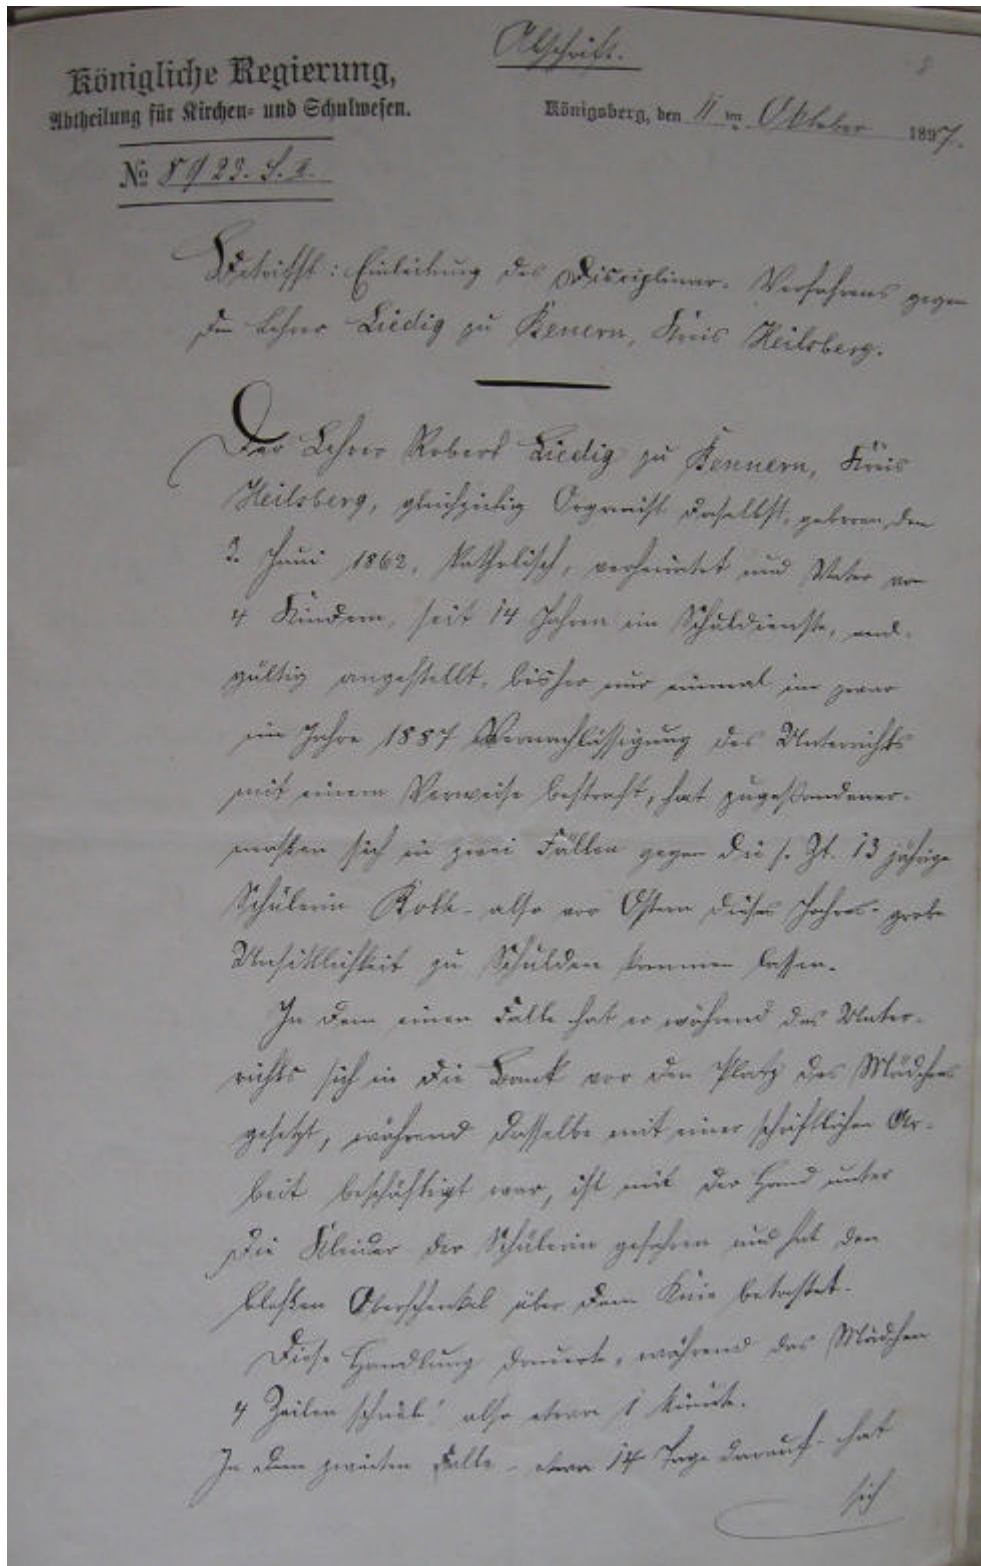 Abschrift.
8
Königliche Regierung,
Abtheilung für Kirchen- und Schulwesen.
Königsberg, den 11ten Oktober 1897.
No 8923. S. II.
Betrifft: Einleitung des Disciplinar-Verfahrens gegen
den Lehrer Liedig zu Benern, Kreis Heilsberg.
Der Lehrer Robert Liedig zu Bennern, Kreis
Heilsberg, gleichzeitig Organist daselbst, geboren den
2. Juni 1862, katholisch, verheiratet und Vater von
4 Kindern, seit 14 Jahren im Schuldienste, end-
gültig angestellt, bisher nur einmal im zwar
im Jahre 1887 Vernachlässigung des Unterrichts
mit einem Verweise bestraft, hat zugestandener-
maßen sich in zwei Fällen gegen die s. Zt. 13 jährige
Schülerin - also vor Ostern dieses Jahres - grobe
Unsittlichkeit zu Schulden kommen lassen.
In dem einen Falle hat er während des Unter-
richts sich in die Bank vor den Platz des Mädchens
gesetzt, während dasselbe mit einer schriftlichen Ar-
beit beschäftigt war, ist mit der Hand unter
die Kleider der Schülerin gefahren und hat den
bloßen Oberschenkel über dem Knie betastet.
Diese Handlung dauerte, während das Mädchen
4 Zeilen schrieb, also etwa 1 Minute.
In dem zweiten Falle - etwa 14 Tage darauf - hat
sich